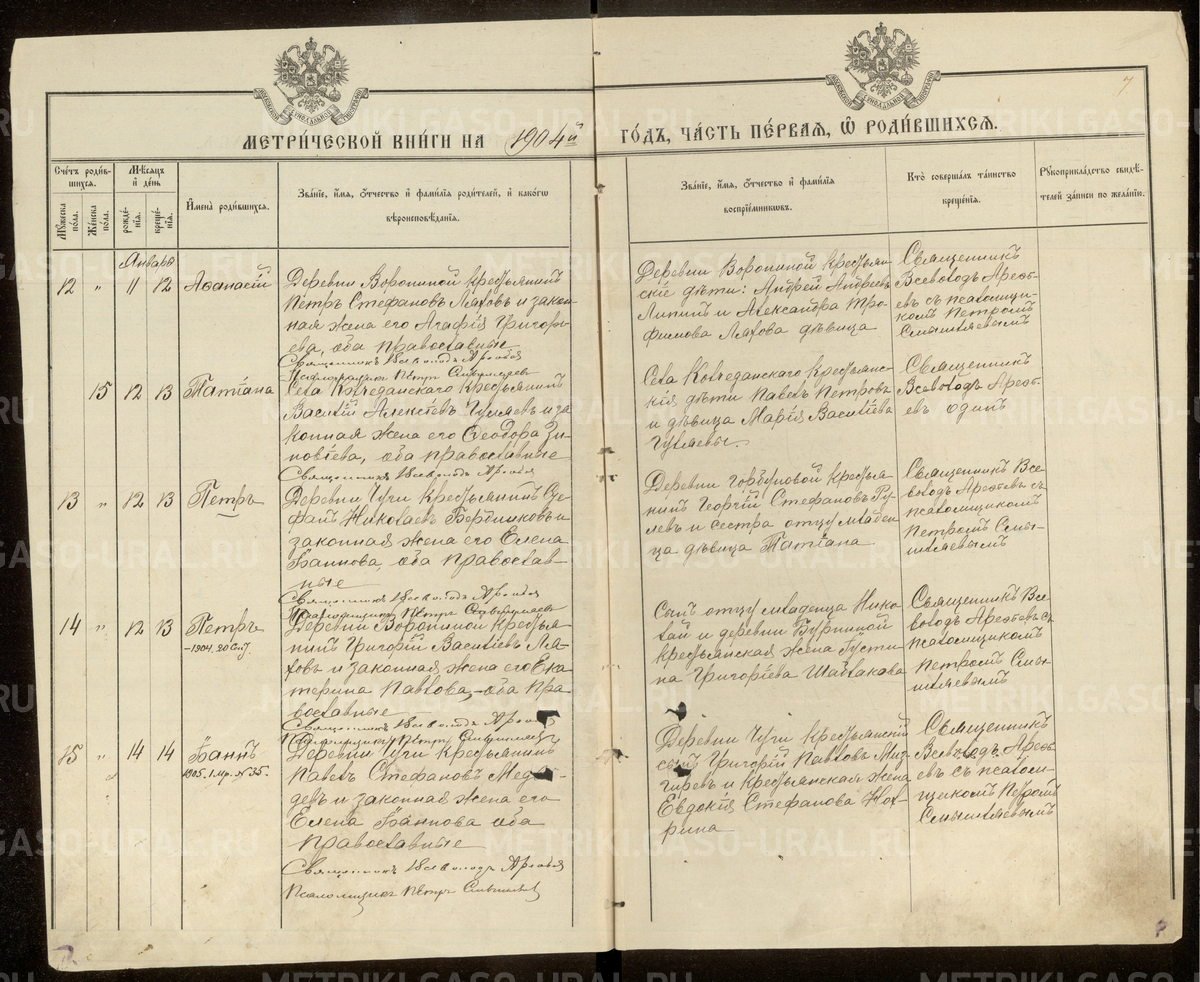 МЕТРИ́ЧЕСКОЙ КНИ́ГИ НА 1904й ГО́ДЪ, ЧА́СТЬ ПЕ́РВАЯ, Ѽ РОДИ́ВШИХСЯ.
7
Сче́тъ роди́вшихся.
Му́жеска по́ла.
Же́нска по́ла.
Мѣ́сяцъ и҆ де́нь
рожде́нїя.
креще́нїя.
И҆мена̀ роди́вшихся.
Зва́нїе, и҆́мя, ѻ҆́тчество и҆ фами́лїя роди́телей, и҆ како́гѡ
вѣроисповѣ́данїя.
Зва́нїе, и҆́мя, ѻ҆́тчество и҆ фами́лїя
воспрїе́мниковъ.
Кто̀ соверша́лъ та́инство
креще́нїя.
Рꙋкоприкла́дство свидѣ́-
телей за́писи по жела́нїю.
Января
12 " 11 12 Аѳанасій
Деревни Ворониной крестьянинъ
Петръ Стефановъ Ляховъ и закон-
ная жена его Агафія Григорь-
ева, оба православные
Священникъ Всеволодъ Арефьев
Псаломщикъ Петръ Смышляев
Деревни Ворониной крестьян-
скіе дѣти: Андрей Андреевъ
Липинъ и Александра Тро-
фимова Ляхова дѣвица
Священникъ
Всеволодъ Арефь-
евъ съ псаломщи-
комъ Петромъ
Смышляевымъ
15 12 13 Татіана
Села Колчеданскаго крестьянинъ
Василій Алексіевъ Гуляевъ и за-
конная жена его Ѳеодора Зи-
новіева, оба православные
Священникъ Всеволодъ Арефьев
Села Колчеданскаго крестьянс-
кія дѣти Павелъ Петровъ
и дѣвица Марія Василіева
Гуляевы.
Священникъ
Всеволодъ Арефь-
евъ одинъ
13 " 12 13 Петръ
Деревни Чуги крестьянинъ Сте-
фанъ Николаевъ Бердниковъ и
законная жена его Елена
Іоаннова, оба православ-
ные
Священникъ Всеволодъ Арефьев
Псаломщикъ Петръ Смышляев
Деревни Горбуновой крестья-
нинъ Георгій Стефановъ Ру-
левъ и сестра отцу младен-
ца дѣвица Татіана
Священникъ Все-
володъ Арефьевъ съ
псаломщикомъ
Петромъ Смы-
шляевымъ
14 " 12 13 Петръ
Деревни Ворониной крестья-
нинъ Григорій Василіевъ Ля-
ховъ и законная жена его Ека-
терина Павлова, оба пра-
вославные
Священникъ Всеволодъ Арефьев
Псаломщикъ Петръ Смышляев
Сынъ отцу младенца Нико-
лай и деревни Бурниной
крестьянская жена Іусти-
на Григоріева Шаблакова
Священникъ Все-
володъ Арефьевъ съ
псаломщикомъ
Петромъ Смы-
шляевымъ
15 " 14 14 Іоаннъ
1905. № 35.
Деревни Чуги крестьянинъ
Павелъ Стефановъ Медвѣ-
девъ и законная жена его
Елена Іоаннова оба
православные
Священникъ Всеволодъ Арефьев
Псаломщикъ Петръ Смышляев
Деревни Чуги крестьянскій
сынъ Григорій Павловъ Миз-
гиревъ и крестьянская жена
Евдокія Стефанова Нох-
рина
Священникъ
Всеволодъ Арефь-
евъ съ псалом-
щикомъ Петромъ
Смышляевымъ
METRIKI.GASO-URAL.RU